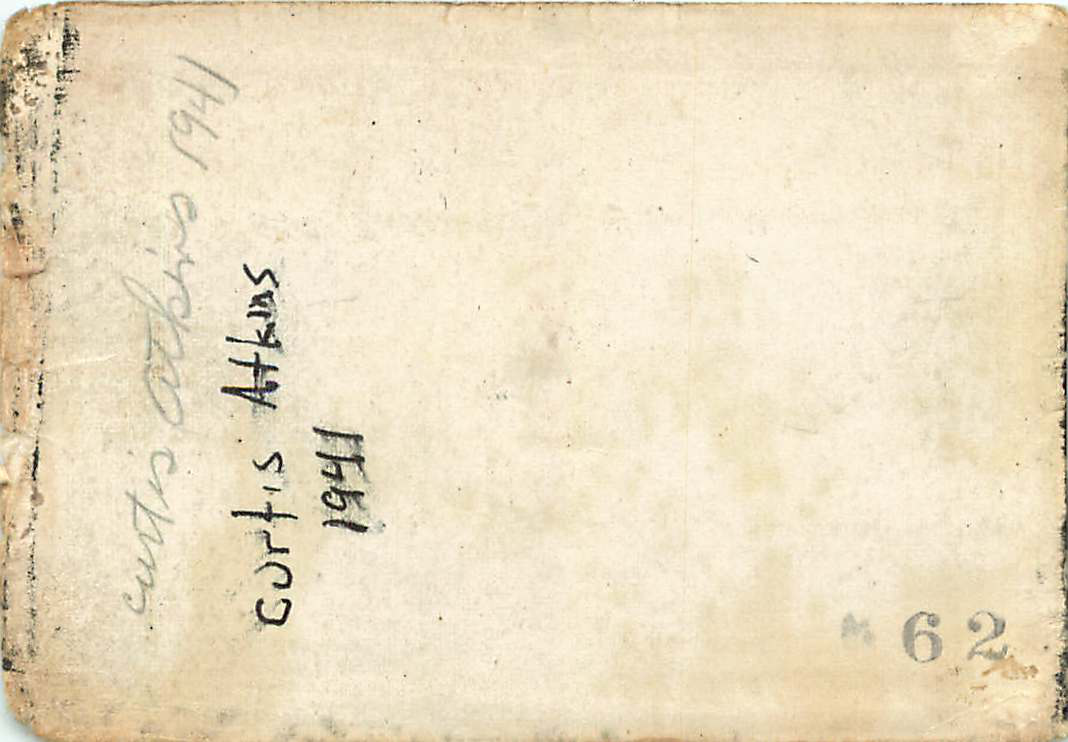 curtis atkins 1941
Curtis Atkins
1941
62